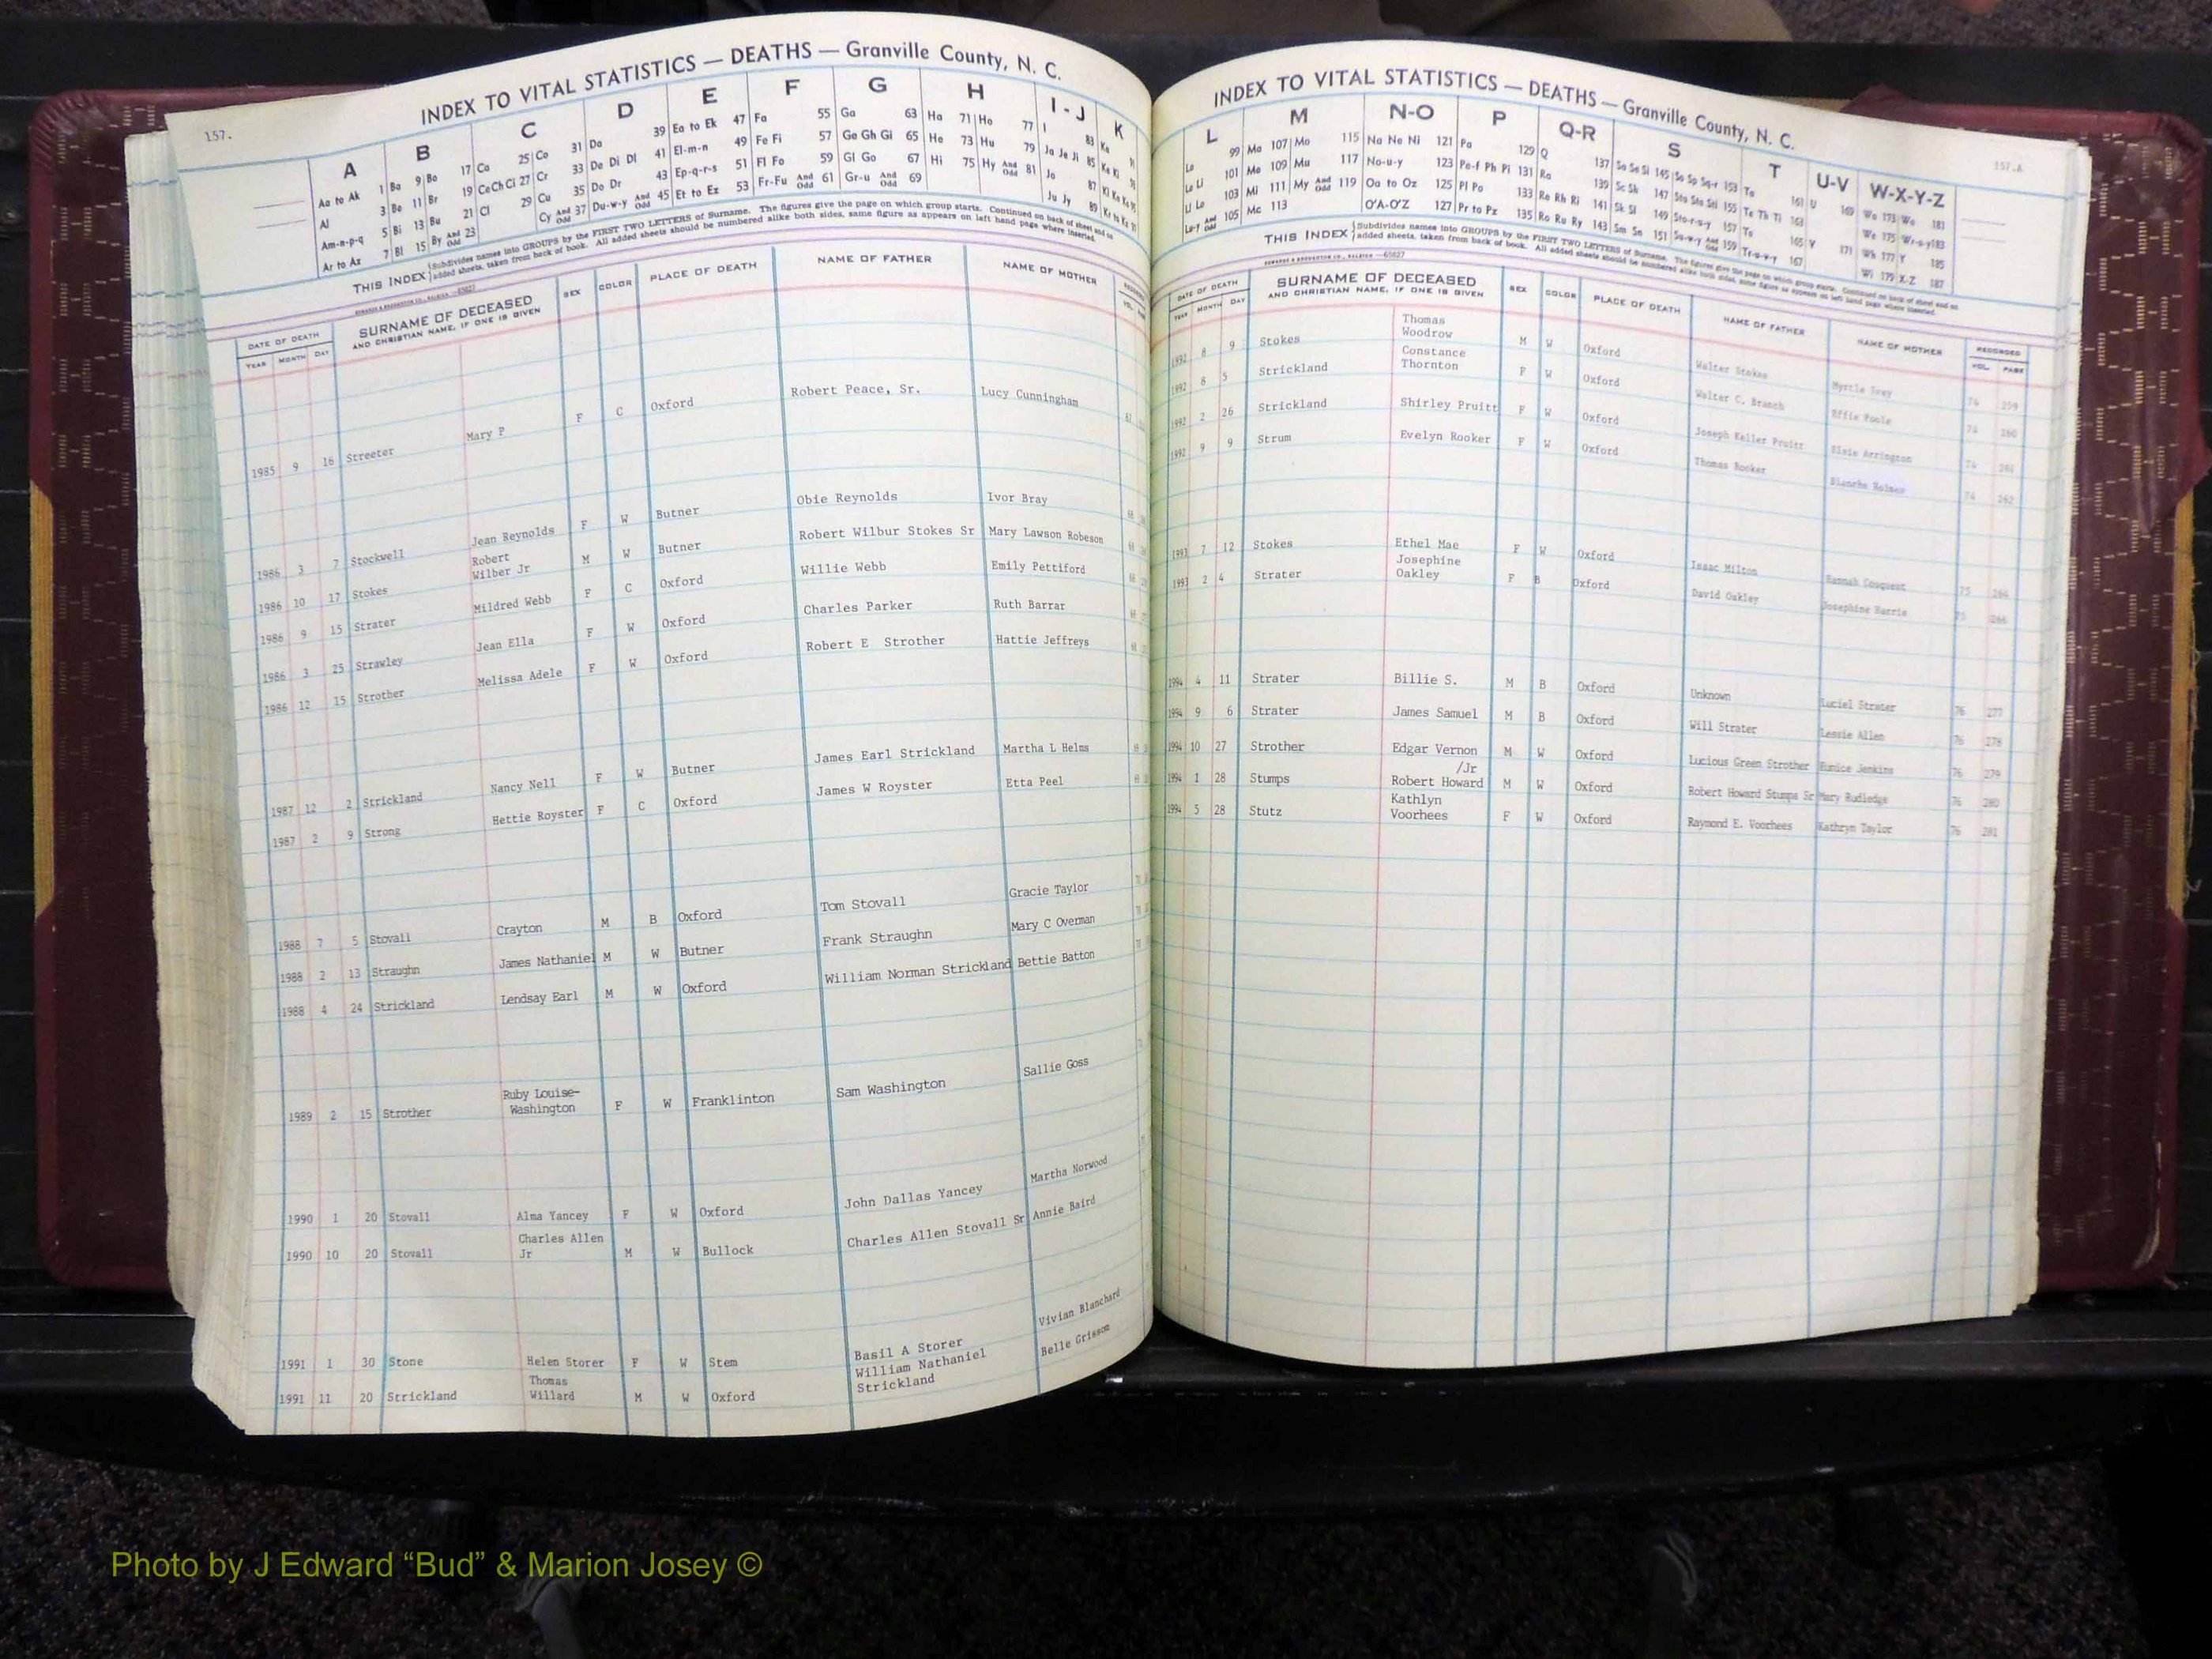 157.
INDEX TO VITAL STATISTICS — DEATHS — Granville County, N. C.
A B C D E F G H I - J K
Aa to Ak 1 Ba 9 Bo 17 Ca 25 Co 31 Da 39 Ea to Ek 47 Fa 55 Ga 63 Ha 71 Ho 77 I 83 Ka
Al 3 Be 11 Br 19 Ce Ch Ci 27 Cr 33 De Di Dl 41 El-m-n 49 Fe Fi 57 Ge Gh Gi 65 He 73 Hu 79 Ja Je Ji 85 Ke Ki
Am-n-p-q 5 Bi 13 Bu 21 Cl 29 Cu 35 Do Dr 43 Ep-q-r-s 51 Fl Fo 59 Gl Go 67 Hi 75 Hy And Odd 81 Jo 87
Ar to Az 7 Bl 15 By And Odd 23 Cy And Odd 37 Du-w-y And Odd 45 Et to Ez 53 Fr-Fu And Odd 61 Gr-u And Odd 69 Ju Jy 89
THIS INDEX Subdivides names into GROUPS by the FIRST TWO LETTERS of Surname. The figures give the page on which group starts. Continued on back of sheet and on
added sheets, taken from back of book. All added sheets should be numbered alike both sides, same figure as appears on left hand page where inserted.
DATE OF DEATH SURNAME OF DECEASED SEX COLOR PLACE OF DEATH NAME OF FATHER NAME OF MOTHER
YEAR MONTH DAY AND CHRISTIAN NAME, IF ONE IS GIVEN
1985 9 16 Streeter Mary P F C Oxford Robert Peace, Sr. Lucy Cunningham
1986 3 7 Stockwell Jean Reynolds F W Butner Obie Reynolds Ivor Bray
1986 10 17 Stokes Robert Wilber Jr M W Butner Robert Wilbur Stokes Sr Mary Lawson Robeson
1986 9 15 Strater Mildred Webb F C Oxford Willie Webb Emily Pettiford
1986 3 25 Strawley Jean Ella F W Oxford Charles Parker Ruth Barrar
1986 12 15 Strother Melissa Adele F W Oxford Robert E Strother Hattie Jeffreys
1987 12 2 Strickland Nancy Nell F W Butner James Earl Strickland Martha L Helms
1987 2 9 Strong Hettie Royster F C Oxford James W Royster Etta Peel
1988 7 5 Stovall Crayton M B Oxford Tom Stovall Gracie Taylor
1988 2 13 Straughn James Nathaniel M W Butner Frank Straughn Mary C Overman
1988 4 24 Strickland Lendsay Earl M W Oxford William Norman Strickland Bettie Batton
1989 2 15 Strother Ruby Louise-
Washington F W Franklinton Sam Washington Sallie Goss
1990 1 20 Stovall Alma Yancey F W Oxford John Dallas Yancey Martha Norwood
1990 10 20 Stovall Charles Allen
Jr M W Bullock Charles Allen Stovall Sr Annie Baird
1991 1 30 Stone Helen Storer F W Stem Basil A Storer Vivian Blanchard
1991 11 20 Strickland Thomas
Willard M W Oxford William Nathaniel
Strickland Belle Grissom
157.A
INDEX TO VITAL STATISTICS — DEATHS — Granville County, N. C.
L M N-O P Q-R S T U-V W-X-Y-Z
La 99 Ma 107 Mo 115 Na Ne Ni 121 Pa 129 Q 137 Sa Se Si 145 So Sp Sq-r 153 Ta 161 U 169 Wa 173 Wo 181
Le Li 101 Me 109 Mu 117 No-u-y 123 Pe-f Ph Pi 131 Ra 139 Sc Sh 147 Sta Ste Sti 155 Te Th Ti 163 V 171 We 175 Wr-u-y 183
Ll Lo 103 Mi 111 My And Odd 119 Oa to Oz 125 Pl Po 133 Re Rh Ri 141 Sk Sl 149 Sto-r-u-y 157 To 165 Wh 177 Y 185
Lu-y And Odd 105 Mc 113 O'A-O'Z 127 Pr to Pz 135 Ro Ru Ry 143 Sm Sn 151 Su-w-y And Odd 159 Tr-u-w-y 167 Wi 179 X-Z 187
THIS INDEX Subdivides names into GROUPS by the FIRST TWO LETTERS of Surname. The figures give the page on which group starts. Continued on back of sheet and on
added sheets, taken from back of book. All added sheets should be numbered alike both sides, same figure as appears on left hand page where inserted.
DATE OF DEATH SURNAME OF DECEASED SEX COLOR PLACE OF DEATH NAME OF FATHER NAME OF MOTHER RECORDED
YEAR MONTH DAY AND CHRISTIAN NAME, IF ONE IS GIVEN VOL. PAGE
1992 8 9 Stokes Thomas
Woodrow M W Oxford Walter Stokes Myrtle 74 259
1992 8 5 Strickland Constance
Thornton F W Oxford Walter C. Branch Effie Poole 74 260
1992 2 26 Strickland Shirley Pruitt F W Oxford Joseph Keller Pruitt Elsie Arrington 74 261
1992 9 9 Strum Evelyn Rooker F W Oxford Thomas Rooker Blanche 74 262
1993 7 12 Stokes Ethel Mae F W Oxford Isaac Milton Hannah Conquest 75 264
1993 2 4 Strater Josephine
Oakley F B Oxford David Oakley Josephine Harris 75 266
1994 4 11 Strater Billie S. M B Oxford Unknown Luciel Strater 76 277
1994 9 6 Strater James Samuel M B Oxford Will Strater Lessie Allen 76 278
1994 10 27 Strother Edgar Vernon M W Oxford Lucious Green Strother Eunice Jenkins 76 279
1994 1 28 Stumps /Jr
Robert Howard M W Oxford Robert Howard Stumps Sr Mary Rudledge 76 280
1994 5 28 Stutz Kathlyn
Voorhees F W Oxford Raymond E. Voorhees Kathryn Taylor 76 281
Photo by J Edward “Bud” & Marion Josey ©